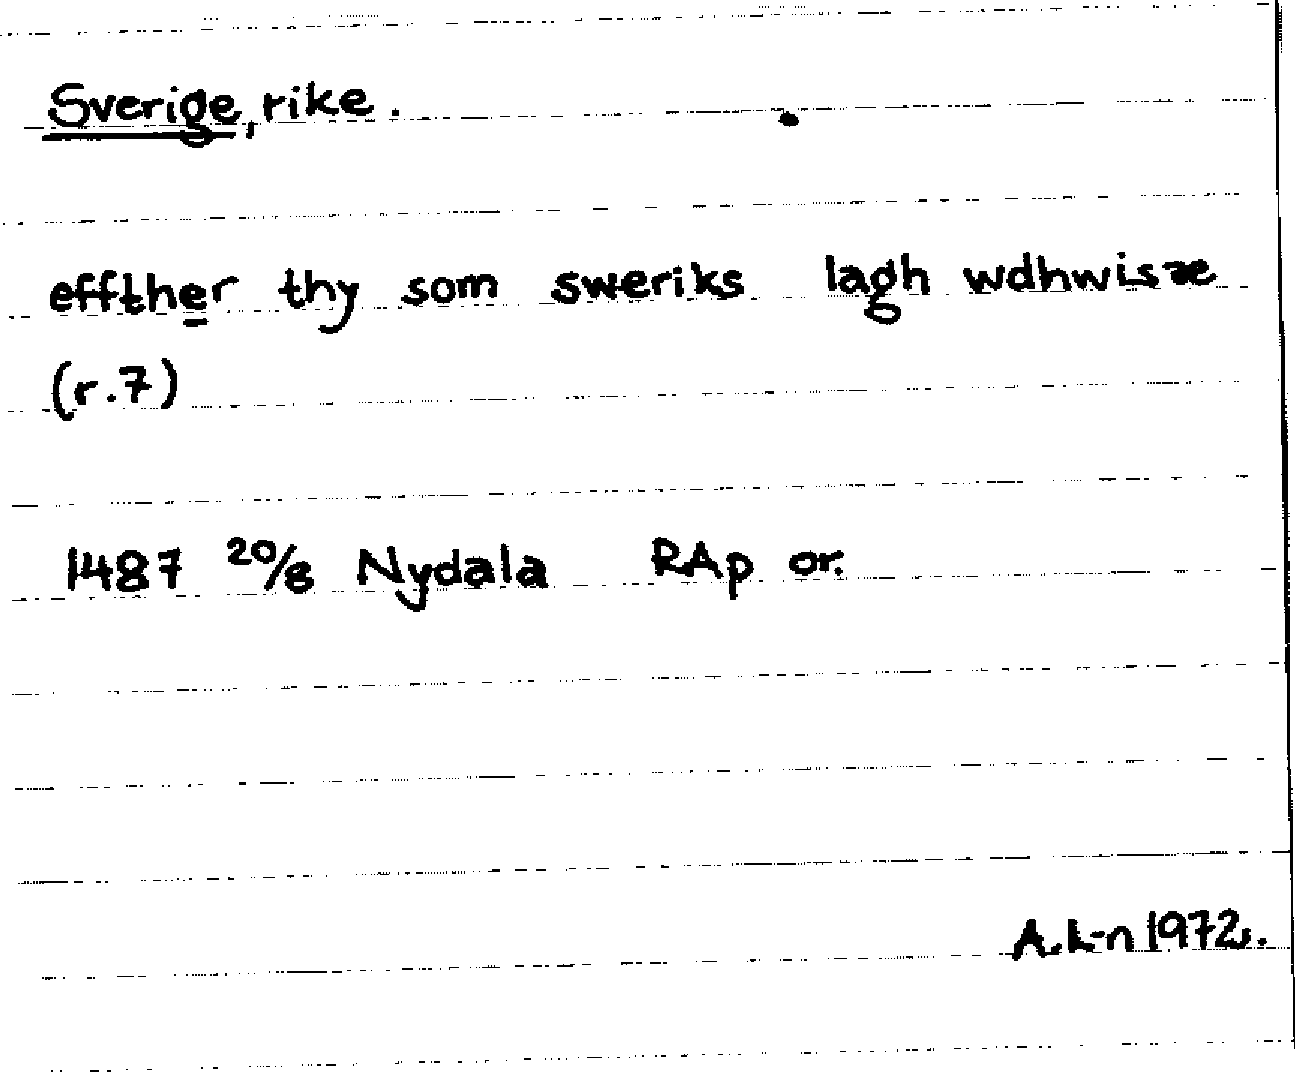 Sverige, rike.
effther thy som sweriks lagh wdhwisæ
(r.7)
1487 20/8 Nydala RAp or.
A.L-n 1972.